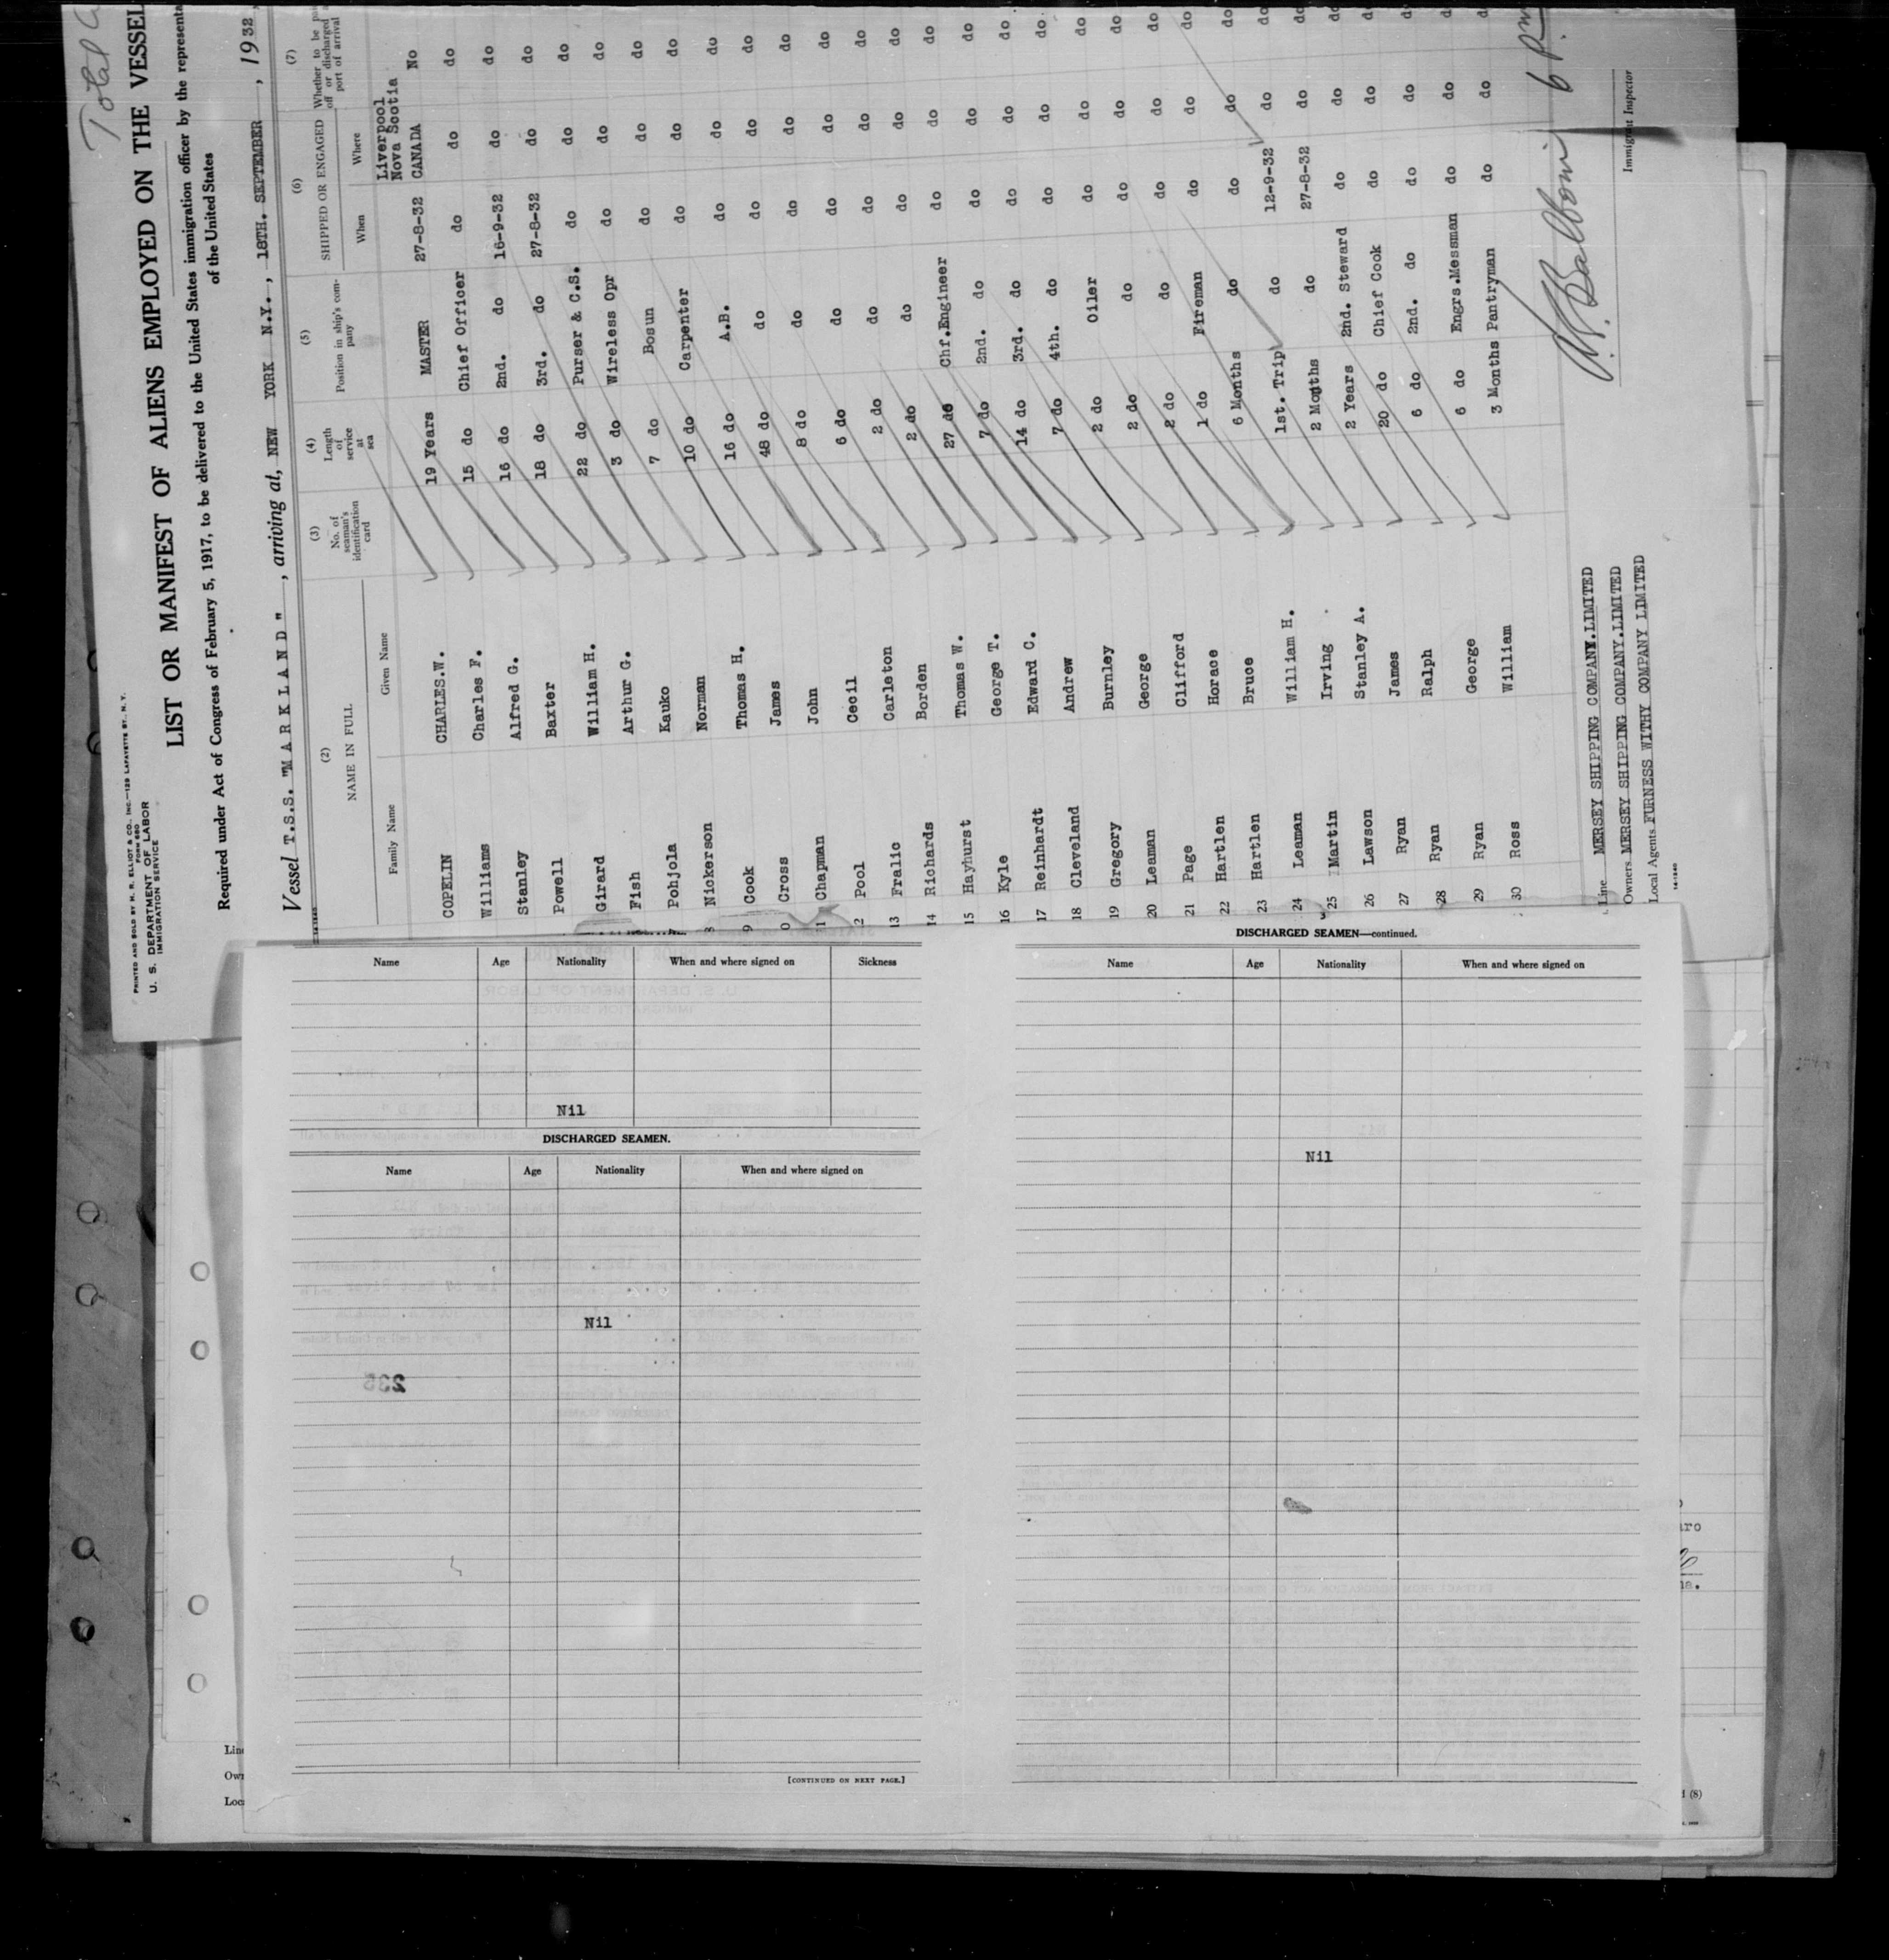 Total
PRINTED AND SOLD BY M. R. ELLIOT & CO., INC.—129 LAFAYETTE ST. N.Y.
FORM 680
U. S. DEPARTMENT OF LABOR
IMMIGRATION SERVICE
LIST OR MANIFEST OF ALIENS EMPLOYED ON THE VESSEL
Required under Act of Congress of February 5, 1917, to be delivered to the United States immigration officer by the representa
of the United States
Vessel T.S.S. "MARKLAND", arriving at, NEW YORK N.Y., 18TH. SEPTEMBER, 1932,
(2) (3) (4) (5) (6) (7)
NAME IN FULL No. of seaman's identification card Length of service at sea Position in ship's company SHIPPED OR ENGAGED Whether to be pai off or discharged a port of arrival
Family Name Given Name When Where
COPELIN CHARLES.W. 19 Years MASTER 27-8-32 Liverpool Nova Scotia CANADA No
Williams Charles F. 15 do Chief Officer do do do
Stanley Alfred G. 16 do 2nd. do 16-9-32 do do
Powell Baxter 18 do 3rd. do 27-8-32 do do
Girard William H. 22 do Purser & C.S. do do do
Fish Arthur G. 3 do Wireless Opr do do do
Pohjola Kauko 7 do Bosun do do do
8 Nickerson Norman 10 do Carpenter do do do
9 Cook Thomas H. 16 do A.B. do do do
0 Cross James 48 do do do do do
1 Chapman John 8 do do do do do
2 Pool Cecil 6 do do do do do
13 Fralic Carleton 2 do do do do do
14 Richards Borden 2 do do do do do
15 Hayhurst Thomas W. 27 do Chf.Engineer do do do
16 Kyle George T. 7 do 2nd. do do do do
17 Reinhardt Edward C. 14 do 3rd. do do do do
18 Cleveland Andrew 7 do 4th. do do do do
19 Gregory Burnley 2 do Oiler do do do
20 Leaman George 2 do do do do do
21 Page Clifford 2 do do do do do
22 Hartlen Horace 1 do Fireman do do do
23 Hartlen Bruce 6 Months do do do do
24 Leaman William H. 1st. Trip do 12-9-32 do do
25 Martin Irving 2 Months do 27-8-32 do do
26 Lawson Stanley A. 2 Years 2nd. Steward do do do
27 Ryan James 20 do Chief Cook do do do
28 Ryan Ralph 6 do 2nd. do do do do
29 Ryan George 6 do Engrs.Messman do do do
30 Ross William 3 Months Pantryman do do do
6 Pm
Immigrant Inspector
Line MERSEY SHIPPING COMPANY.LIMITED
Owners MERSEY SHIPPING COMPANY.LIMITED
Local Agents FURNESS WITHY COMPANY LIMITED
Name Age Nationality When and where signed on Sickness
Nil
DISCHARGED SEAMEN.
Name Age Nationality When and where signed on
Nil
235
[CONTINUED ON NEXT PAGE.]
DISCHARGED SEAMEN—continued.
Name Age Nationality When and where signed on
Nil
Line
Own
Loc
(8)